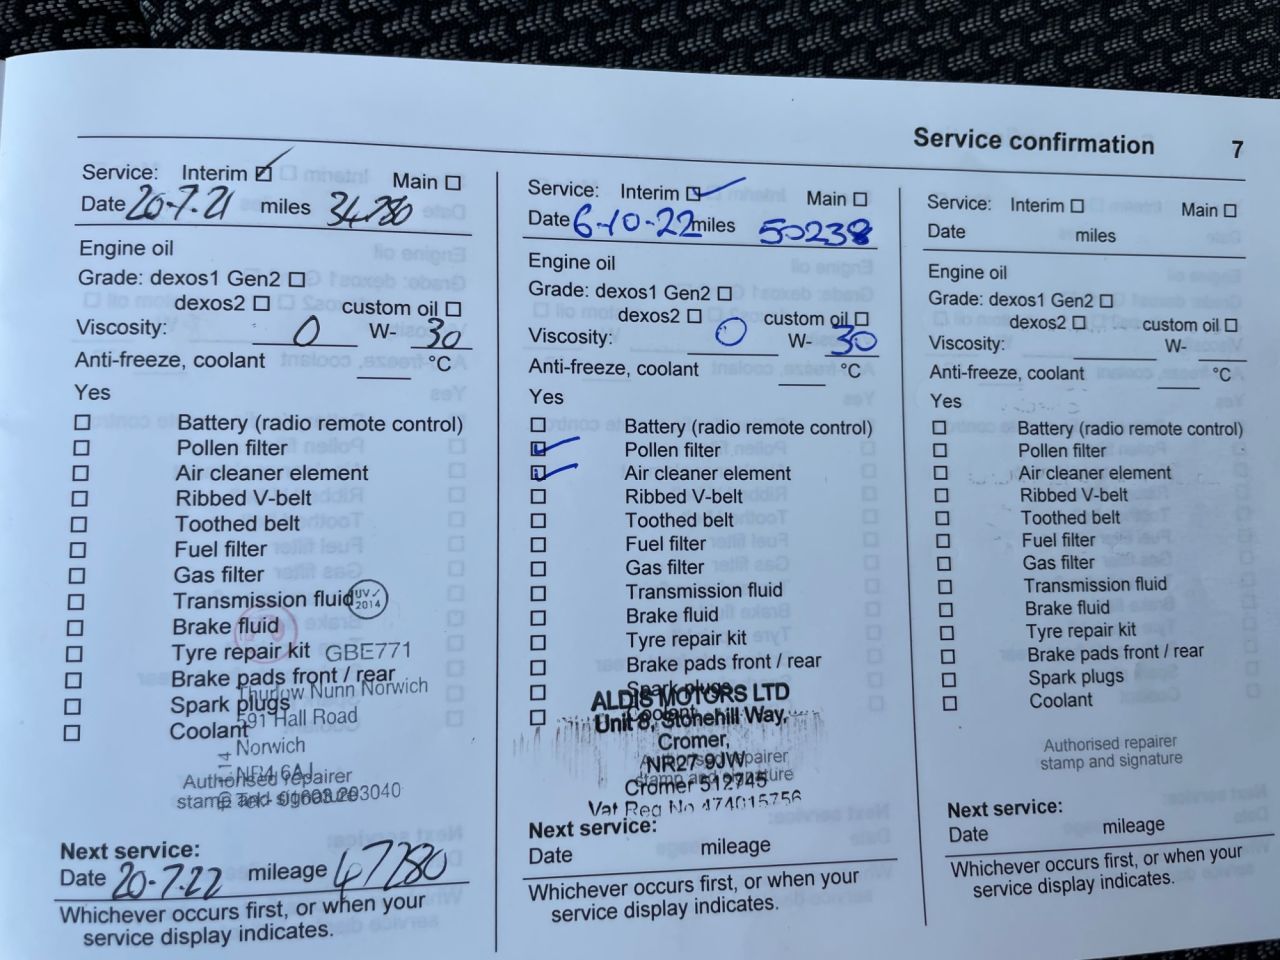 Service confirmation 7
Service: Interim Main
Date 20-7-21 miles 34780
Engine oil
Grade: dexos1 Gen2
dexos2 custom oil
Viscosity: 0 W- 30
Anti-freeze, coolant °C
Yes
Battery (radio remote control)
Pollen filter
Air cleaner element
Ribbed V-belt
Toothed belt
Fuel filter
Gas filter
Transmission fluid
UV ✓
2014
Brake fluid
Tyre repair kit
GBE771
Brake pads front / rear
Spark plugs
Coolant
Thurlow Nunn Norwich
591 Hall Road
Norwich
NR4 6AJ
Tel: 01603 203040
Authorised repairer
stamp and signature
Next service:
Date 20-7-22 mileage 47780
Whichever occurs first, or when your
service display indicates.
Service: Interim Main
Date 6-10-22 miles 50238
Engine oil
Grade: dexos1 Gen2
dexos2 custom oil
Viscosity: 0 W- 30
Anti-freeze, coolant °C
Yes
Battery (radio remote control)
Pollen filter
Air cleaner element
Ribbed V-belt
Toothed belt
Fuel filter
Gas filter
Transmission fluid
Brake fluid
Tyre repair kit
Brake pads front / rear
Spark plugs
Coolant
ALDIS MOTORS LTD
Unit 8, Stonehill Way,
Cromer,
NR27 9JW
Cromer 512745
Vat Reg No 474015756
Authorised repairer
stamp and signature
Next service:
Date mileage
Whichever occurs first, or when your
service display indicates.
Service: Interim Main
Date miles
Engine oil
Grade: dexos1 Gen2
dexos2 custom oil
Viscosity: W-
Anti-freeze, coolant °C
Yes
Battery (radio remote control)
Pollen filter
Air cleaner element
Ribbed V-belt
Toothed belt
Fuel filter
Gas filter
Transmission fluid
Brake fluid
Tyre repair kit
Brake pads front / rear
Spark plugs
Coolant
Authorised repairer
stamp and signature
Next service:
Date mileage
Whichever occurs first, or when your
service display indicates.